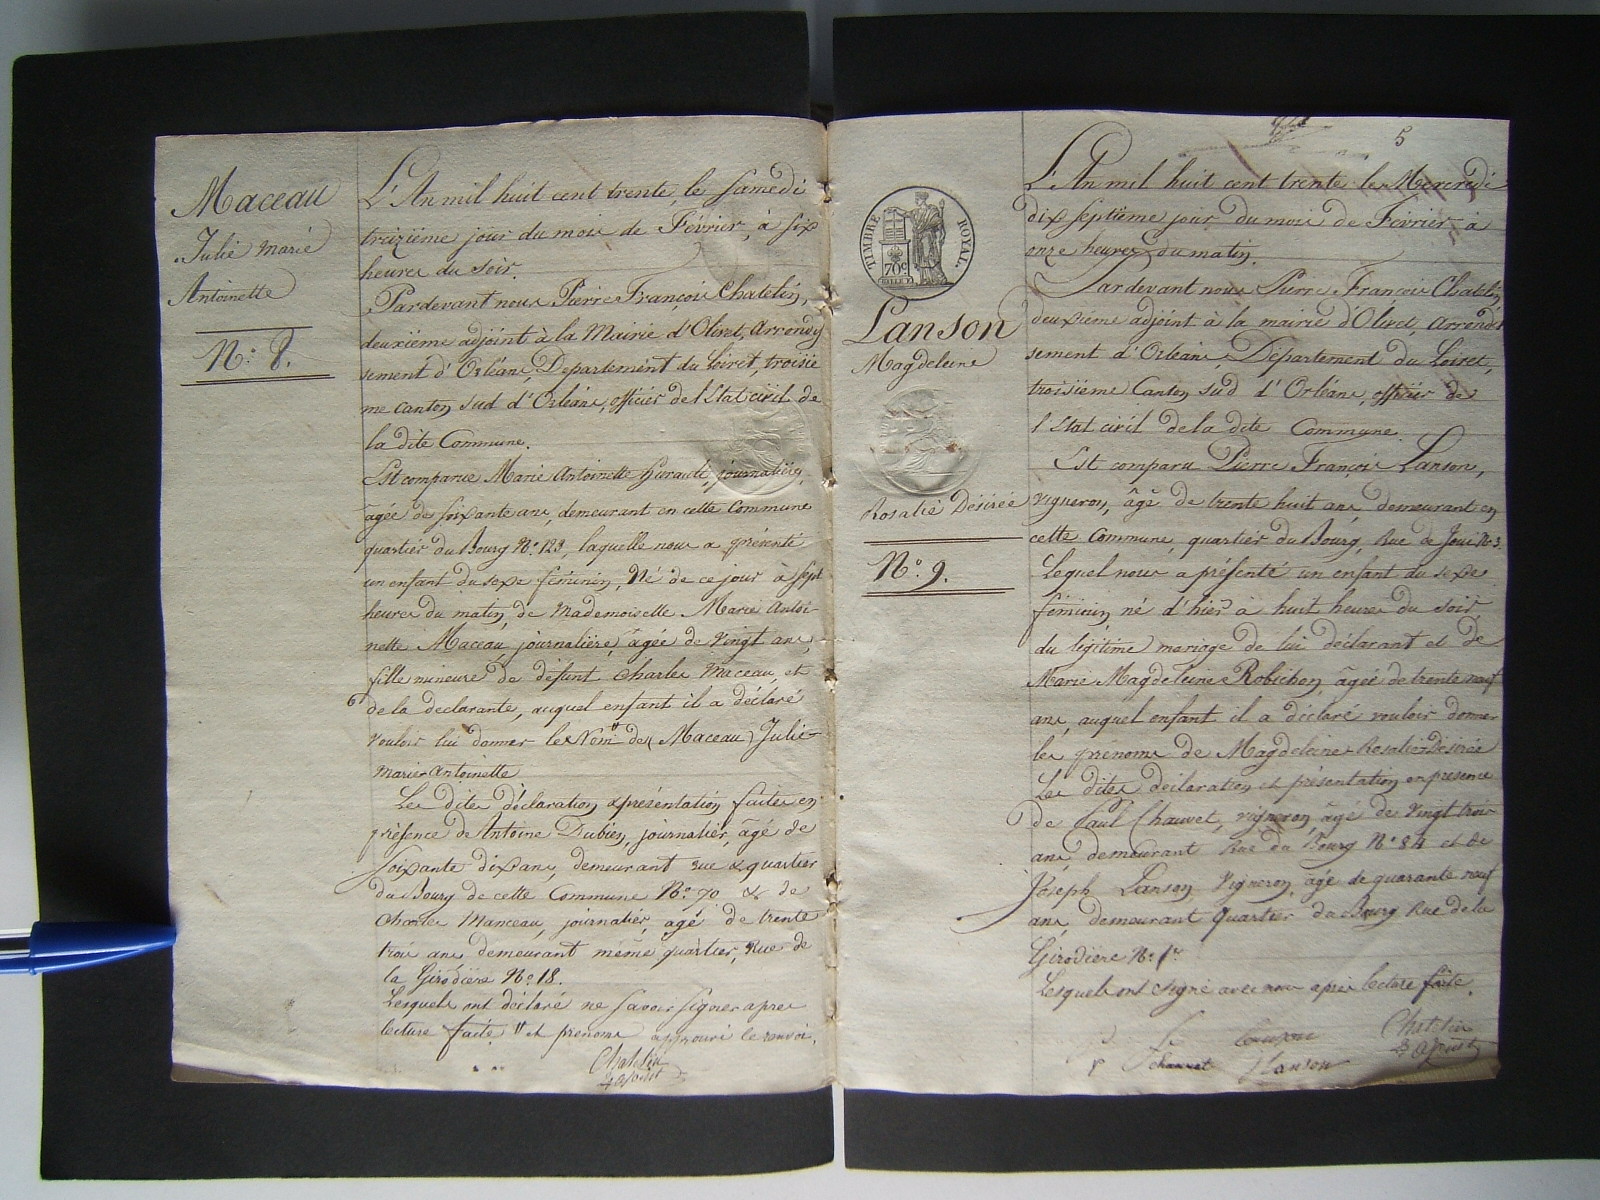 Maceau
Julie Marie
Antoinette
N.° 8.
L'An mil huit cent trente, le Samedi
treizième jour du mois de Février, à six
heures du soir.
Pardevant nous Pierre François Chatelin,
deuxième adjoint à la Mairie d'Olivet, Arrondis
sement d'Orléans, Département du Loiret, troisiè
me Canton sud d'Orléans, officier de l'Etat civil de
la dite Commune.
Est comparue Marie Antoinette journalière,
âgée de soixante ans, demeurant en cette Commune
quartier du Bourg N.° 123, laquelle nous a présenté
un enfant du sexe féminin, Né de ce jour à sept
heures du matin, de Mademoiselle Marie Antoi-
nette Maceau, journalière, âgée de vingt ans,
fille mineure de défunt Charles Maceau, et
de la déclarante, auquel enfant il a déclaré
vouloir lui donner les Nom " de Maceau Julie
Marie Antoinette
Les dites déclaration & présentation faites en
présence de Antoine Dubien, journalier, âgé de
soixante dix ans, demeurant rue & quartier
du Bourg de cette Commune N.° 70 & de
Charles Manceau, journalier, âgé de trente
trois ans demeurant même quartier, Rue de
la Girodière N.° 18.
Lesquels ont déclaré ne savoir signer après
lecture faite " et prénoms approuvé le renvoi.
Chatelin
adjoint
5
TIMBRE ROYAL.
70c
Lanson
Magdeleine
Rosalie Désirée
N.° 9.
L'An mil huit cent trente le Mercredi
dix septième jour du mois de Février à
onze heures du matin.
Pardevant nous Pierre François Chatelin
deuxième adjoint à la mairie d'Olivet, arrondis
sement d'Orléans, Département du Loiret,
troisième Canton sud d'Orléans, officier de
l'Etat civil de la dite Commune.
Est comparu Pierre François Lanson,
vigneron, âgé de trente huit ans demeurant en
cette Commune, quartier du Bourg, Rue de Joui N.° 3.
Lequel nous a présenté un enfant du sexe
féminin, né d'hier à huit heures du soir
du légitime mariage de lui déclarant et de
Marie Magdeleine Robichon, âgée de trente neuf
ans, auquel enfant il a déclaré vouloir donner
les prénoms de Magdeleine Rosalie Désirée
Les dites déclaration et présentation en présence
de Paul Chauvet, vigneron, âgé de vingt trois
ans, demeurant Rue du Bourg N.° 84 et de
Joseph Lanson Vigneron, âgé de quarante neuf
ans, demeurant Quartier du Bourg Rue de la
Girodière N.° 1er
Lesquels ont signé avec nous après lecture faite.
Chauvet
Lanson
Chatelin
adjoint